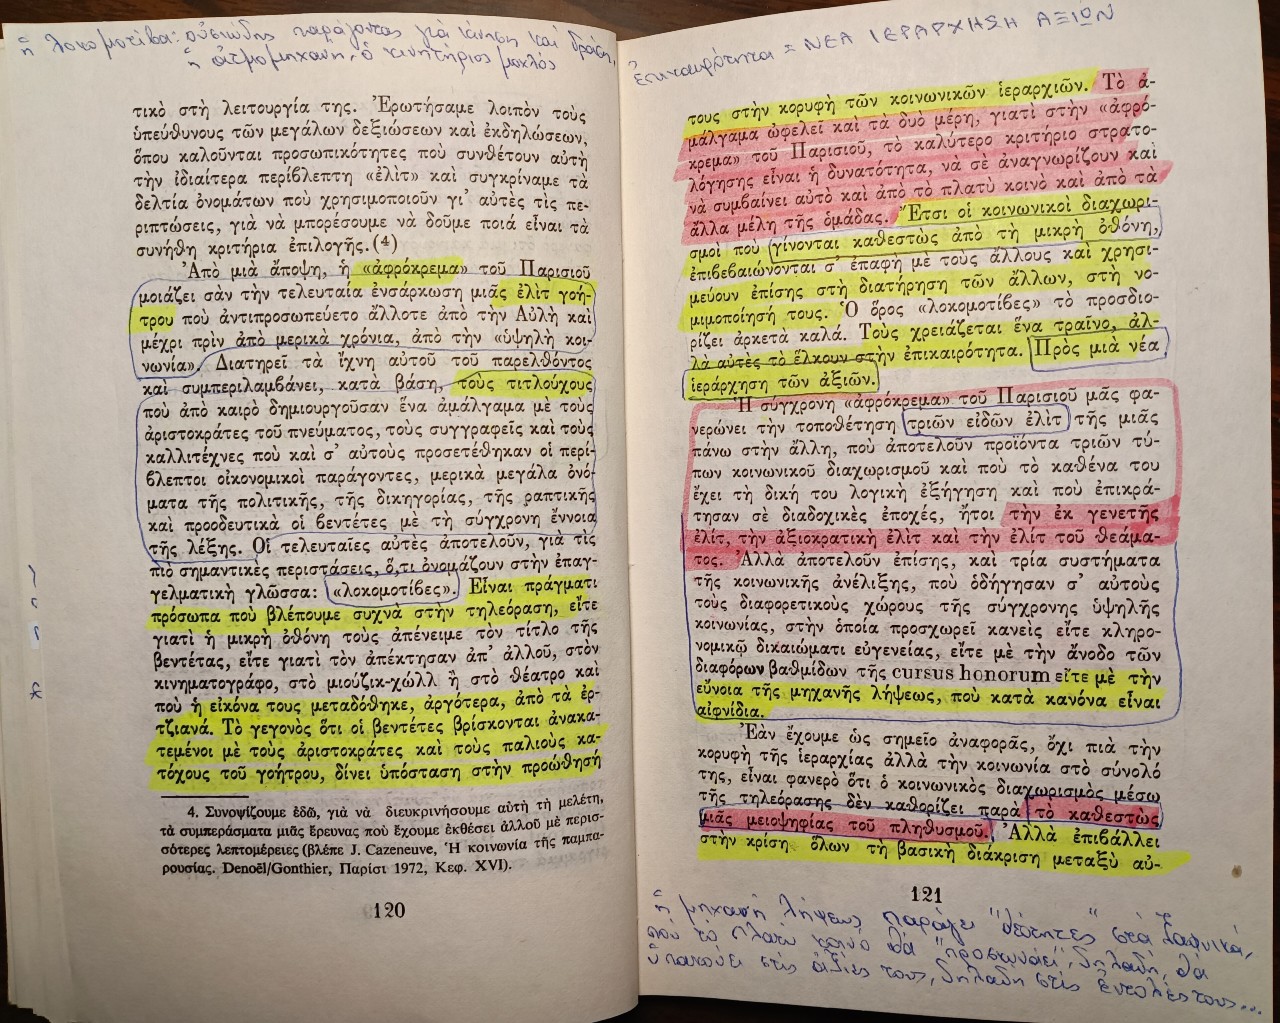 ἡ λοκομοτίβα: οὐσιώδης παράγοντας γιὰ κίνηση καὶ δράση,
ἡ ἀτμομηχανή, ὁ κινητήριος μοχλός
τικὸ στὴ λειτουργία της. Ἐρωτήσαμε λοιπὸν τοὺς
ὑπεύθυνους τῶν μεγάλων δεξιώσεων καὶ ἐκδηλώσεων,
ὅπου καλοῦνται προσωπικότητες ποὺ συνθέτουν αὐτὴ
τὴν ἰδιαίτερα περίβλεπτη «ἐλὶτ» καὶ συγκρίναμε τὰ
δελτία ὀνομάτων ποὺ χρησιμοποιοῦν γι' αὐτὲς τὶς πε-
ριπτώσεις, γιὰ νὰ μπορέσουμε νὰ δοῦμε ποιά εἶναι τὰ
συνήθη κριτήρια ἐπιλογῆς.(4)
Ἀπὸ μιὰ ἄποψη, ἡ «ἀφρόκρεμα» τοῦ Παρισιοῦ
μοιάζει σὰν τὴν τελευταία ἐνσάρκωση μιᾶς ἐλὶτ γοή-
τρου ποὺ ἀντιπροσωπευέτο ἄλλοτε ἀπὸ τὴν Αὐλὴ καὶ
μέχρι πρὶν ἀπὸ μερικὰ χρόνια, ἀπὸ τὴν «ὑψηλὴ κοι-
νωνία». Διατηρεῖ τὰ ἴχνη αὐτοῦ τοῦ παρελθόντος
καὶ συμπεριλαμβάνει, κατὰ βάση, τοὺς τιτλούχους
ποὺ ἀπὸ καιρὸ δημιουργοῦσαν ἕνα ἀμάλγαμα μὲ τοὺς
ἀριστοκράτες τοῦ πνεύματος, τοὺς συγγραφεῖς καὶ τοὺς
καλλιτέχνες ποὺ καὶ σ' αὐτοὺς προσετέθηκαν οἱ περί-
βλεπτοι οἰκονομικοὶ παράγοντες, μερικὰ μεγάλα ὀνό-
ματα τῆς πολιτικῆς, τῆς δικηγορίας, τῆς ραπτικῆς
καὶ προοδευτικὰ οἱ βεντέτες μὲ τὴ σύγχρονη ἔννοια
τῆς λέξης. Οἱ τελευταῖες αὐτὲς ἀποτελοῦν, γιὰ τὶς
πιὸ σημαντικὲς περιστάσεις, ὅ,τι ὀνομάζουν στὴν ἐπαγ-
γελματικὴ γλῶσσα: «λοκομοτίβες». Εἶναι πράγματι
πρόσωπα ποὺ βλέπουμε συχνὰ στὴν τηλεόραση, εἴτε
γιατὶ ἡ μικρὴ ὀθόνη τοὺς ἀπένειμε τὸν τίτλο τῆς
βεντέτας, εἴτε γιατὶ τὸν ἀπέκτησαν ἀπ' ἀλλοῦ, στὸν
κινηματογράφο, στὸ μιούζικ-χώλλ ἢ στὸ θέατρο καὶ
ποὺ ἡ εἰκόνα τους μεταδόθηκε, ἀργότερα, ἀπὸ τὰ ἐρ-
τζιανά. Τὸ γεγονὸς ὅτι οἱ βεντέτες βρίσκονται ἀνακα-
τεμένοι μὲ τοὺς ἀριστοκράτες καὶ τοὺς παλιοὺς κα-
τόχους τοῦ γοήτρου, δίνει ὑπόσταση στὴν προώθησή
4. Συνοψίζουμε ἐδῶ, γιὰ νὰ διευκρινήσουμε αὐτὴ τὴ μελέτη,
τὰ συμπεράσματα μιᾶς ἔρευνας ποὺ ἔχουμε ἐκθέσει ἀλλοῦ μὲ περισ-
σότερες λεπτομέρειες (βλέπε J. Cazeneuve, Ἡ κοινωνία τῆς παμπα-
ρουσίας. Denoël/Gonthier, Παρίσι 1972, Κεφ. XVI).
120
ἐπικαιρότητα = ΝΕΑ ΙΕΡΑΡΧΗΣΗ ΑΞΙΩΝ
τους στὴν κορυφὴ τῶν κοινωνικῶν ἱεραρχιῶν. Τὸ ἀ-
μάλγαμα ὠφελεῖ καὶ τὰ δυὸ μέρη, γιατὶ στὴν «ἀφρό-
κρεμα» τοῦ Παρισιοῦ, τὸ καλύτερο κριτήριο στρατο-
λόγησης εἶναι ἡ δυνατότητα, νὰ σὲ ἀναγνωρίζουν καὶ
νὰ συμβαίνει αὐτὸ καὶ ἀπὸ τὸ πλατὺ κοινὸ καὶ ἀπὸ τὰ
ἄλλα μέλη τῆς ὁμάδας. Ἔτσι οἱ κοινωνικοὶ διαχωρι-
σμοὶ ποὺ γίνονται καθεστὼς ἀπὸ τὴ μικρὴ ὀθόνη,
ἐπιβεβαιώνονται σ' ἐπαφὴ μὲ τοὺς ἄλλους καὶ χρησι-
μεύουν ἐπίσης στὴ διατήρηση τῶν ἄλλων, στὴ νο-
μιμοποίησή τους. Ὁ ὅρος «λοκομοτίβες» τὸ προσδιο-
ρίζει ἀρκετὰ καλά. Τοὺς χρειάζεται ἕνα τραῖνο, ἀλ-
λὰ αὐτὲς τὸ ἕλκουν στὴν ἐπικαιρότητα. Πρὸς μιὰ νέα
ἱεράρχηση τῶν ἀξιῶν.
Ἡ σύγχρονη «ἀφρόκρεμα» τοῦ Παρισιοῦ μᾶς φα-
νερώνει τὴν τοποθέτηση τριῶν εἰδῶν ἐλὶτ τῆς μιᾶς
πάνω στὴν ἄλλη, ποὺ ἀποτελοῦν προϊόντα τριῶν τύ-
πων κοινωνικοῦ διαχωρισμοῦ καὶ ποὺ τὸ καθένα του
ἔχει τὴ δική του λογικὴ ἐξήγηση καὶ ποὺ ἐπικρά-
τησαν σὲ διαδοχικὲς ἐποχές, ἤτοι τὴν ἐκ γενετῆς
ἐλίτ, τὴν ἀξιοκρατικὴ ἐλὶτ καὶ τὴν ἐλὶτ τοῦ θεάμα-
τος. Ἀλλὰ ἀποτελοῦν ἐπίσης, καὶ τρία συστήματα
τῆς κοινωνικῆς ἀνέλιξης, ποὺ ὁδήγησαν σ' αὐτοὺς
τοὺς διαφορετικοὺς χώρους τῆς σύγχρονης ὑψηλῆς
κοινωνίας, στὴν ὁποία προσχωρεῖ κανεὶς εἴτε κληρο-
νομικῷ δικαιώματι εὐγενείας, εἴτε μὲ τὴν ἄνοδο τῶν
διαφόρων βαθμίδων τῆς cursus honorum εἴτε μὲ τὴν
εὔνοια τῆς μηχανῆς λήψεως, ποὺ κατὰ κανόνα εἶναι
αἰφνίδια.
Ἐὰν ἔχουμε ὡς σημεῖο ἀναφορᾶς, ὄχι πιὰ τὴν
κορυφὴ τῆς ἱεραρχίας ἀλλὰ τὴν κοινωνία στὸ σύνολό
της, εἶναι φανερὸ ὅτι ὁ κοινωνικὸς διαχωρισμὸς μέσω
τῆς τηλεόρασης δὲν καθορίζει παρὰ τὸ καθεστὼς
μιᾶς μειοψηφίας τοῦ πληθυσμοῦ. Ἀλλὰ ἐπιβάλλει
στὴν κρίση ὅλων τὴ βασικὴ διάκριση μεταξὺ αὐ-
121
ἡ μηχανὴ λήψεως παράγει "θεότητες" στὰ ξαφνικά,
ποὺ τὸ πλατὺ κοινὸ θὰ "προσκυνάει", δηλαδή, θὰ
ὑπακούει στὶς ἀξίες τους, δηλαδὴ στὶς ἐντολές τους...